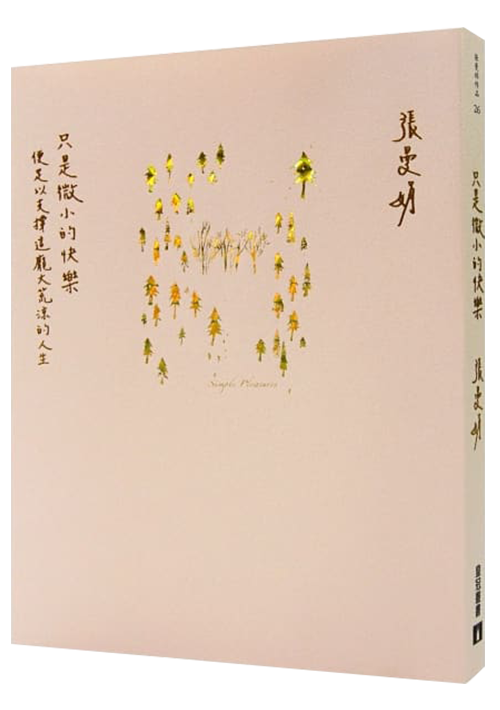 張曼娟
只是微小的快樂
便足以支撐這龐大荒涼的人生
Simple Pleasures
張曼娟作品 26
只是微小的快樂 張曼娟
皇冠叢書